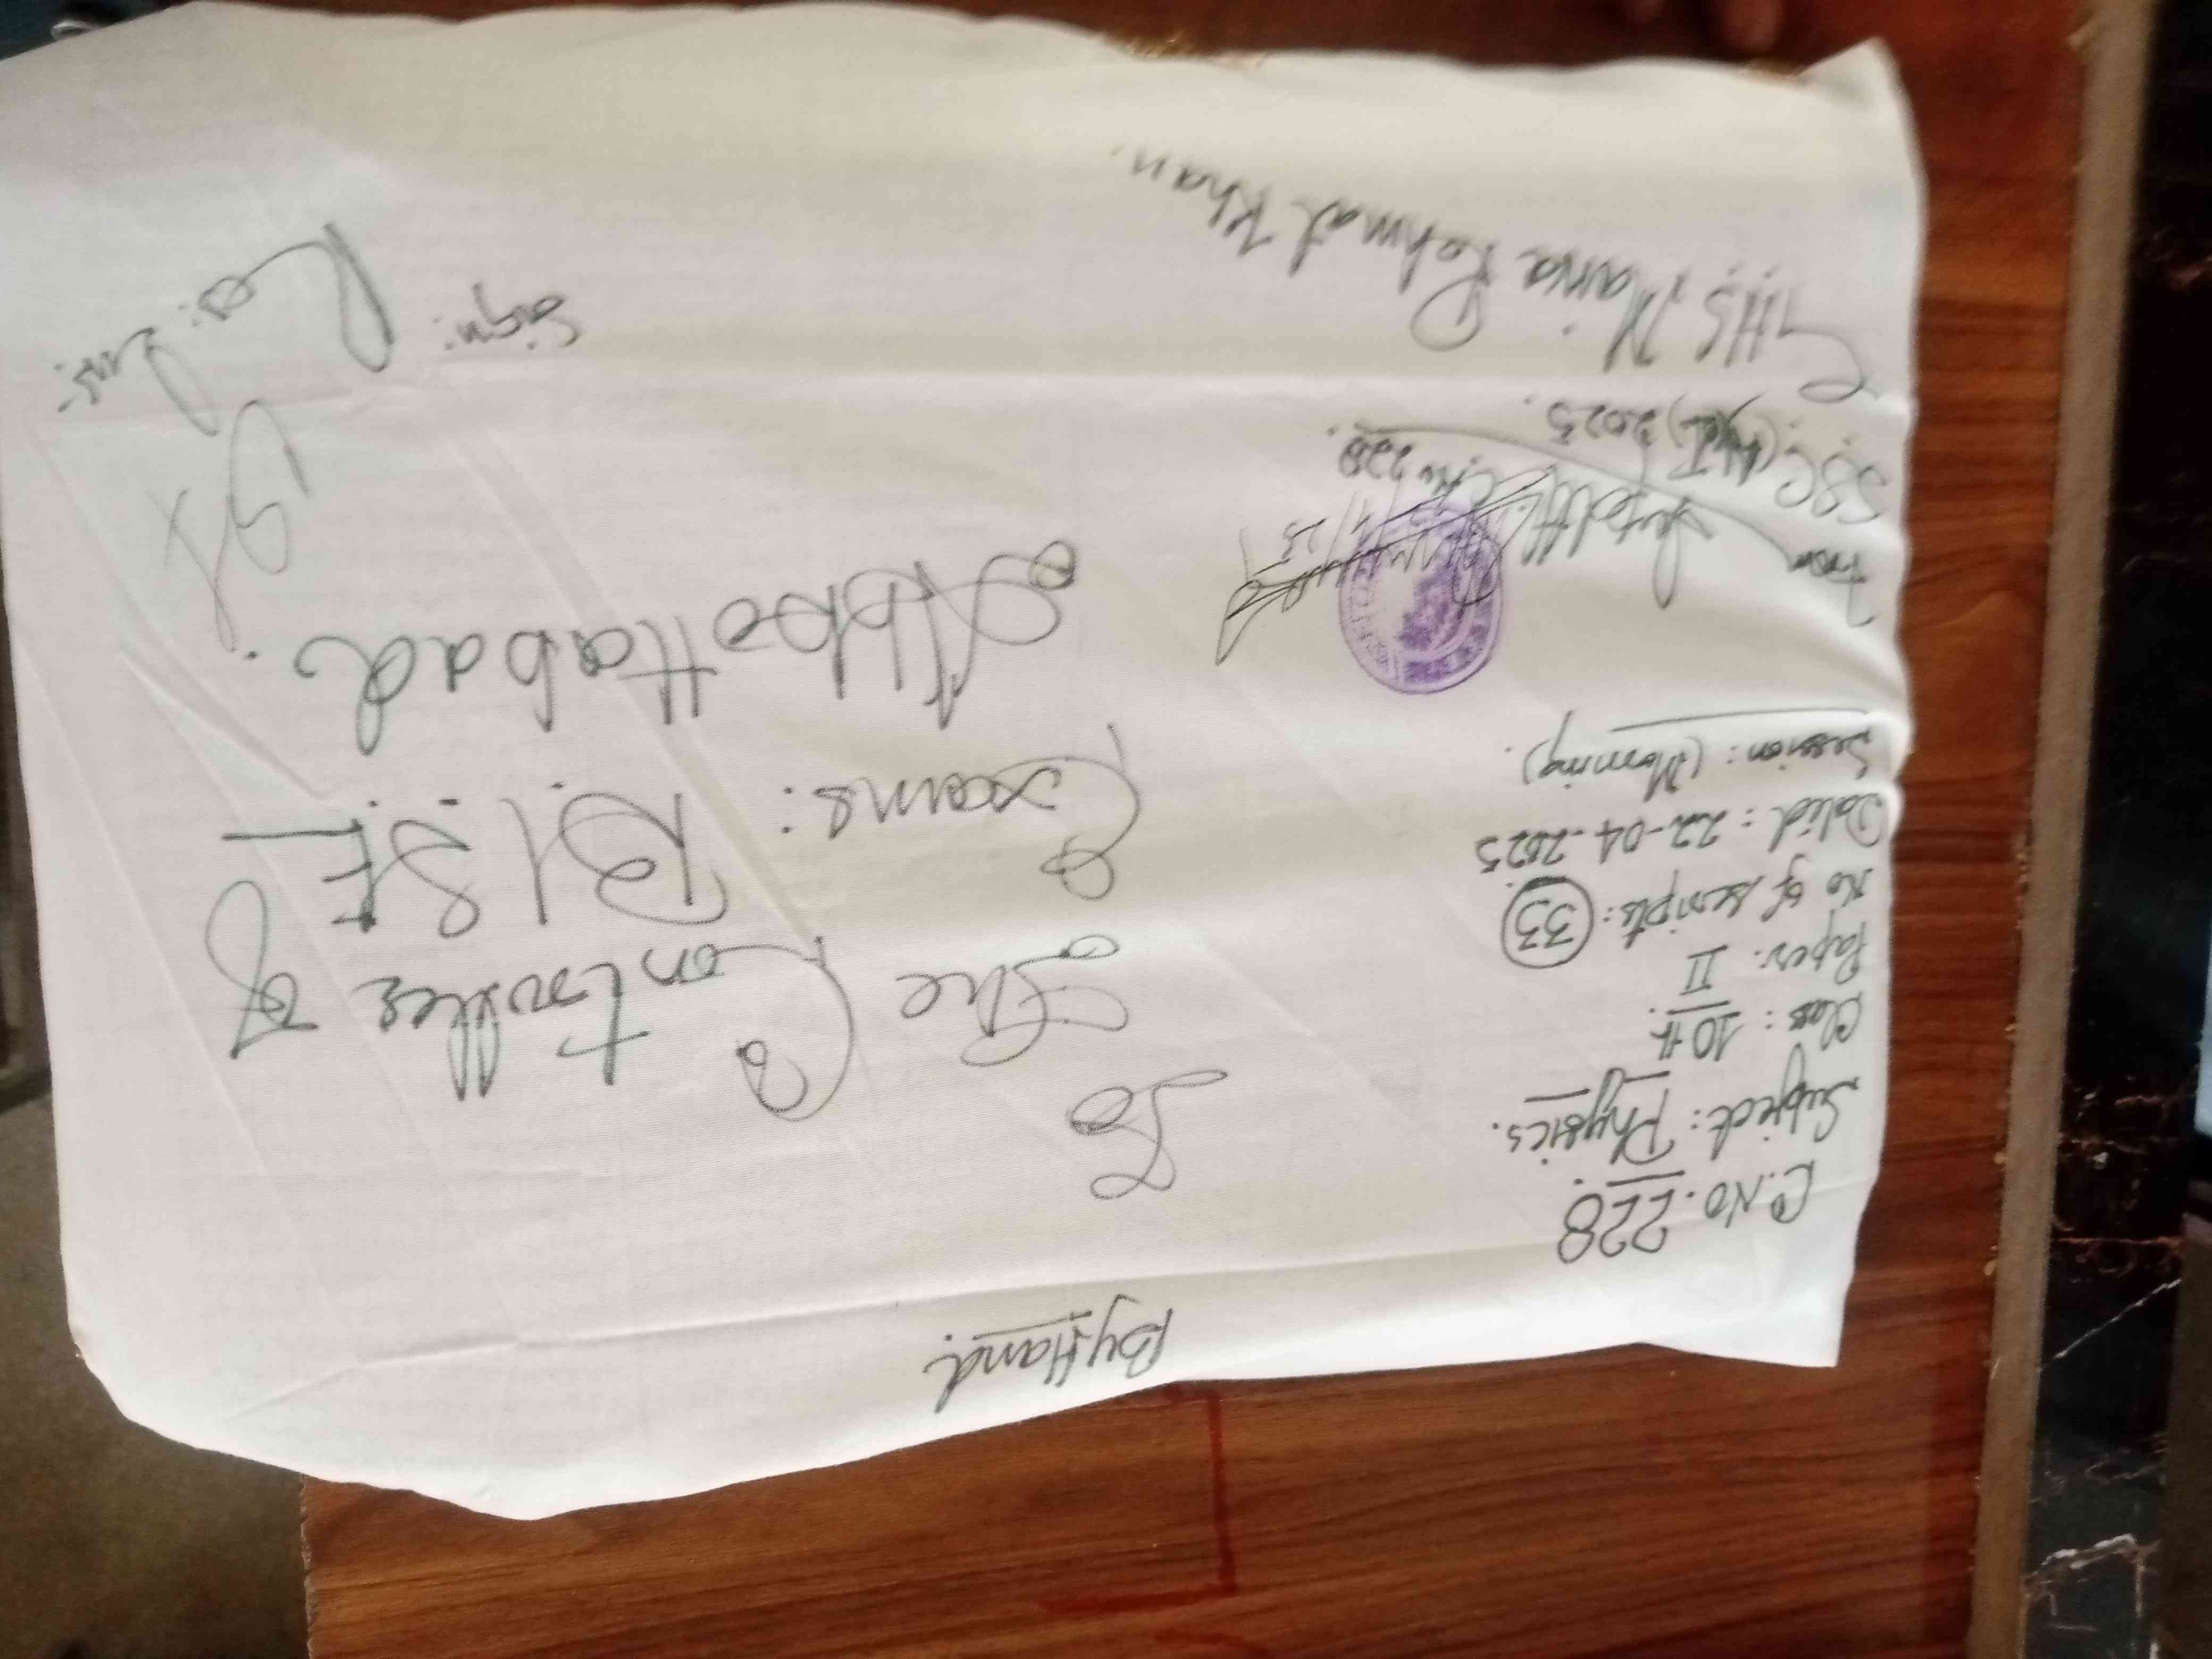 By Hand.
C.No. 228.
Subject: Physics.
Class: 10th.
Paper: II
No of scripts: 33
Dated: 22-04-2025
Session: (Morning).
To
The Controller of
Exams: B.I.S.E
Abbottabad.
From
C.No 228.
SSC 2025.
GHS, Maira Rehmat Khan.
Sign:
Res: Ins: